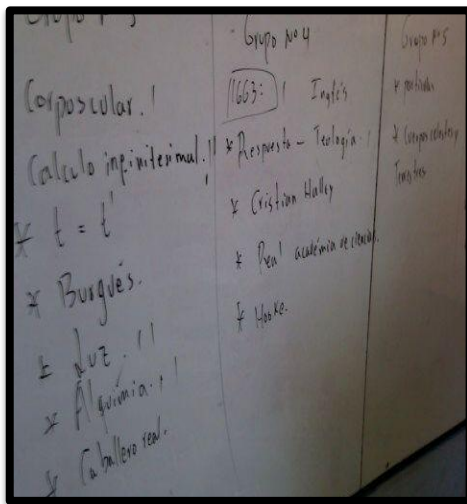 Grupo Nº 3
Corposcular. !
Calculo infinitesimal. !!
* t = t'
* Burgués.
* Luz. !!
* Alquimia. !!
* Caballero real.
Grupo Nº 4
1663: ! Inglés
* Respuesta - Teología. !
* Cristian Halley
* Real académia de ciencias.
* Hooke.
Grupo Nº 5
* partículas
* Cuerpos celestes y
Terrestres